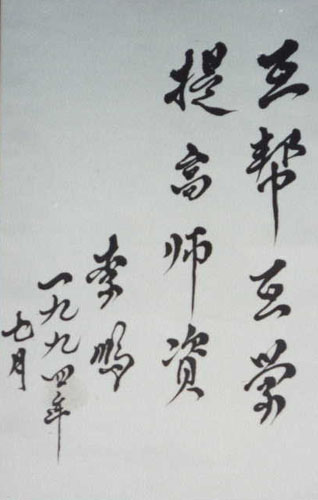 互帮互学
提高师资
李鹏
一九九四年
七月